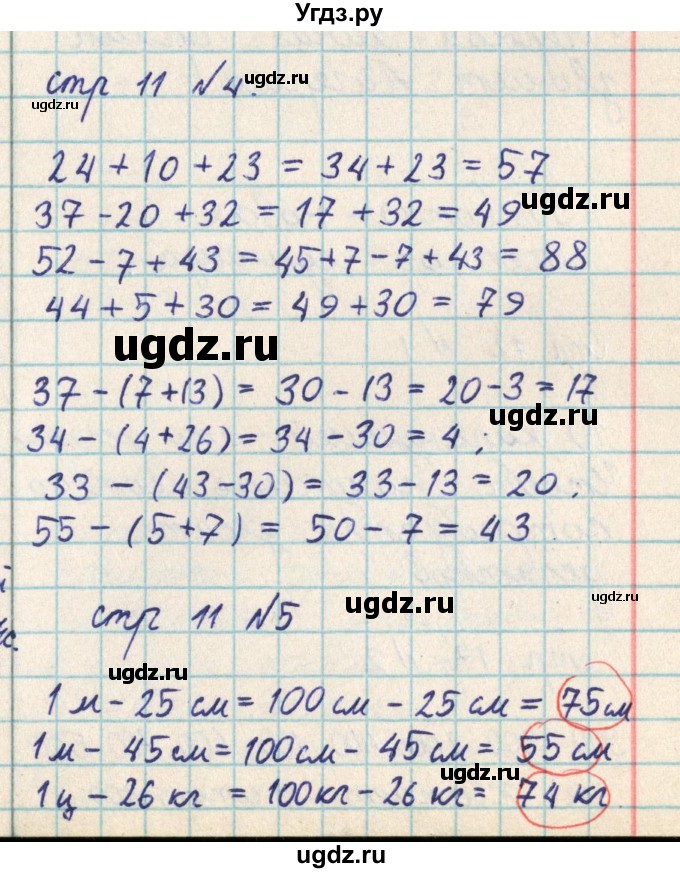 Угдз.ру
стр 11 №4.
ugdz.ru
ugdz.ru
24 + 10 + 23 = 34 + 23 = 57
37 - 20 + 32 = 17 + 32 = 49
ugdz.ru
52 - 7 + 43 = 45 + 7 - 7 + 43 = 88
44 + 5 + 30 = 49 + 30 = 79
ugdz.ru
ugdz.ru
37 - (7 + 13) = 30 - 13 = 20 - 3 = 17
ugdz.ru
34 - (4 + 26) = 34 - 30 = 4;
33 - (43 - 30) = 33 - 13 = 20;
55 - (5 + 7) = 50 - 7 = 43
ugdz.ru
ugdz.ru
стр 11 №5
ugdz.ru
1 м - 25 см = 100 см - 25 см = 75 см
1 м - 45 см = 100 см - 45 см = 55 см
ugdz.ru
1 ц - 26 кг = 100 кг - 26 кг = 74 кг
ugdz.ru
ugdz.ru